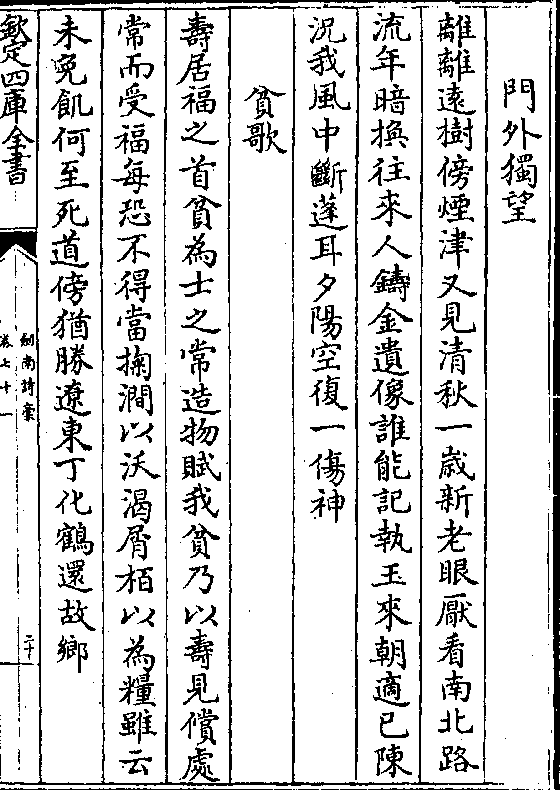 門外獨望
離離遠樹傍煙津又見清秋一歲新老眼厭看南北路
流年暗換往來人鑄金遺像誰能記執玉來朝適已陳
況我風中斷蓬耳夕陽空復一傷神
貧歌
壽居福之首貧為士之常造物賦我貧乃以壽見償處
常而受福每恐不得當掬澗以沃渴屑栢以為糧雖云
未免飢何至死道傍猶勝遼東丁化鶴還故鄉
欽定四庫全書
劍南詩藁
卷七十一
二十